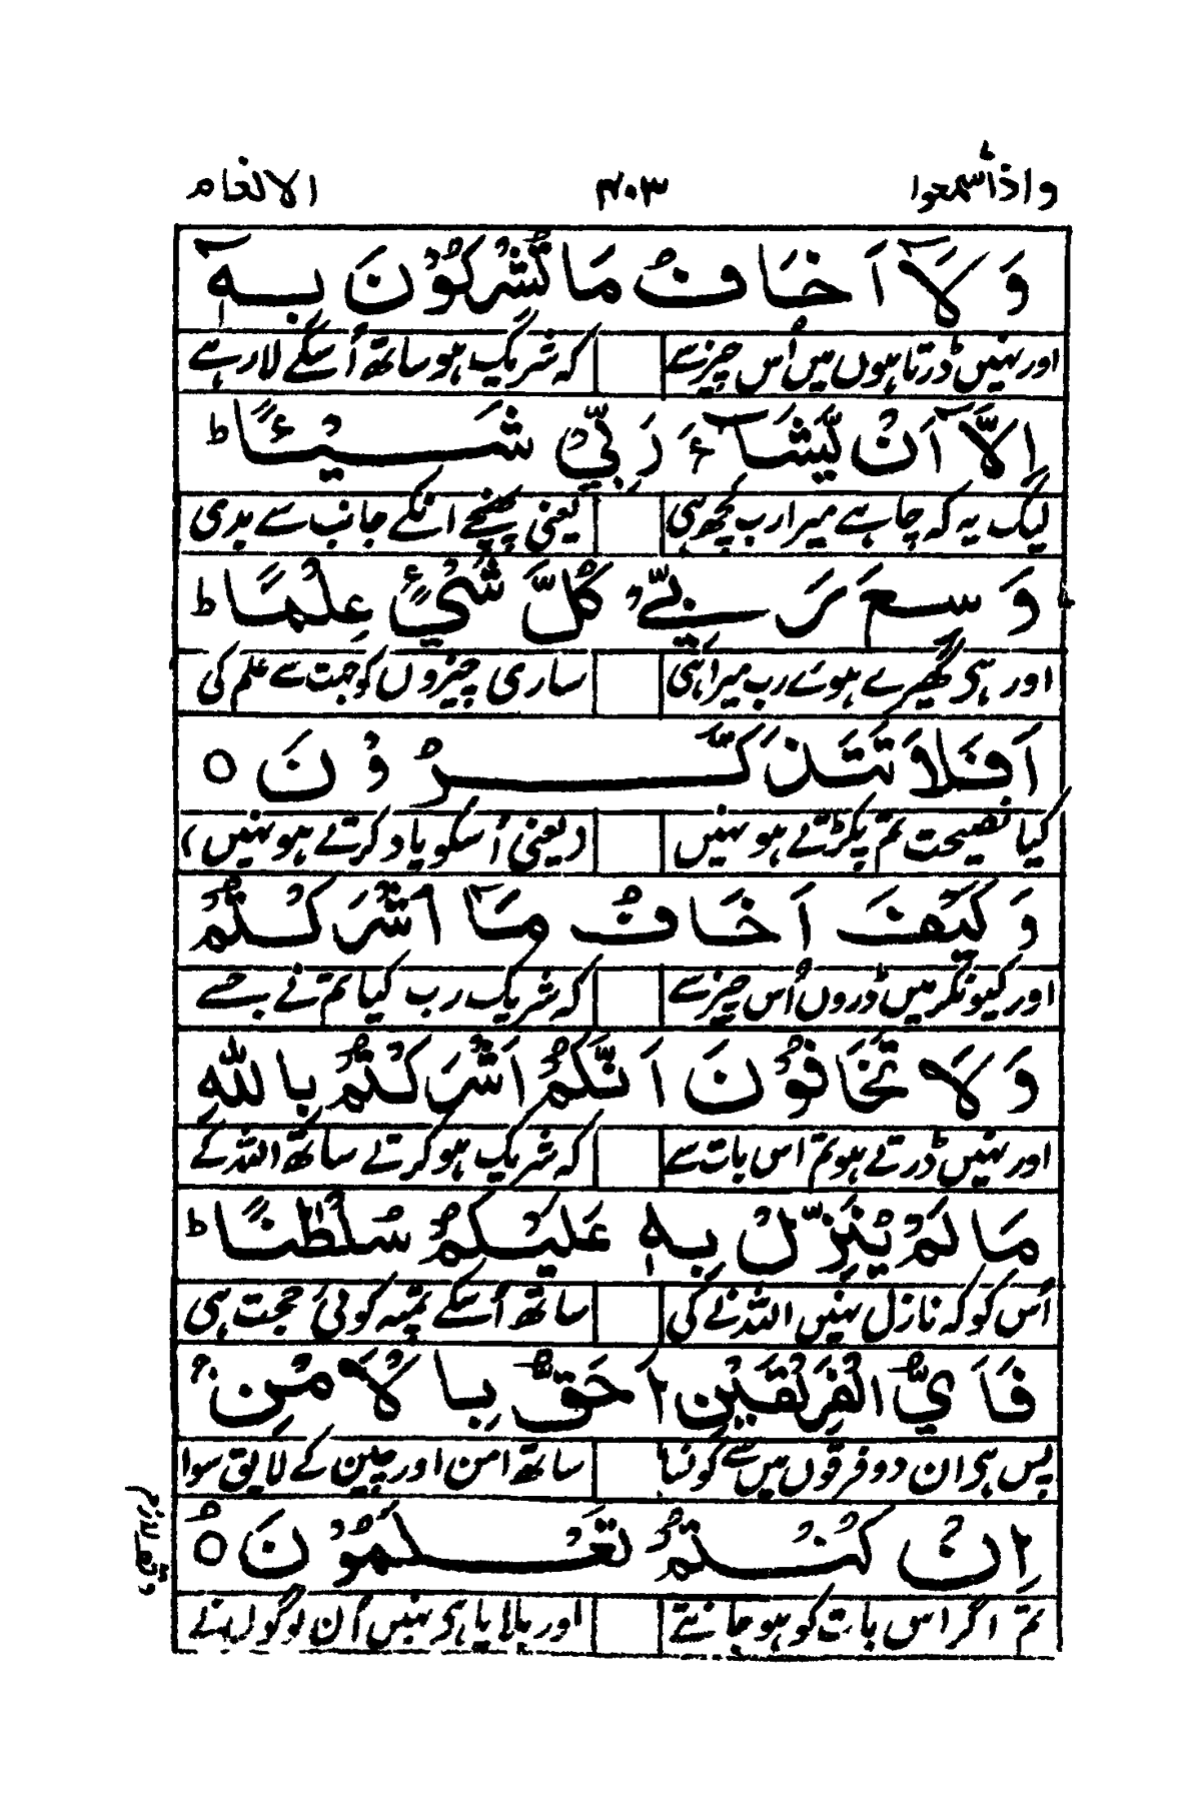 واذاسمعوا ۴۰۳ الانعام
وَلَآ اَخَافُ مَا تُشْرِكُوْنَ بِهٖٓ
اور نہیں ڈرتا ہوں میں اُس چیز سے کہ شریک ہو ساتھ اُسکے لا رہے
اِلَّآ اَنْ يَّشَآءَ رَبِّيْ شَـيْـًٔـا ط
لیک یہ کہ چاہے میرا رب کچھ ہی یعنی پہنچے انکے جانب سے بدی
وَسِعَ رَبِّيْ كُلَّ شَيْءٍ عِلْمًا ط
اور ہی گھیرے ہوے رب میرا ہی ساری چیزوں کو جہت سے علم کی
اَفَلَا تَتَذَكَّرُوْنَ ○
کیا نصیحت تم پکڑتے ہو نہیں (یعنی اُسکو یاد کرتے ہو نہیں)
وَكَيْفَ اَخَافُ مَآ اَشْرَكْتُمْ
اور کیونکر میں ڈروں اُس چیز سے کہ شریک رب کیا تم نے جسے
وَلَا تَخَافُوْنَ اَنَّكُمْ اَشْرَكْتُمْ بِاللّٰهِ
اور نہیں ڈرتے ہو تم اس بات سے کہ شریک ہو کرتے ساتھ اللہ کے
مَا لَمْ يُنَزِّلْ بِهٖ عَلَيْكُمْ سُلْطٰنًا ط
اُس کو کہ نازل نہیں اللہ نے کی ساتھ اُسکے تمپہ کوئی حجت ہی
فَاَيُّ الْفَرِيْقَيْنِ اَحَقُّ بِالْاَمْنِ ۚ
پس ہی ان دو فرقوں میں سے کونسا ساتھ امن اور چین کے لایق سوا
اِنْ كُنْتُمْ تَعْلَمُوْنَ ○ۘ
وقف لازم
تم اگر اس بات کو ہو جانتے اور ملایا ہی نہیں اُن لوگوں نے